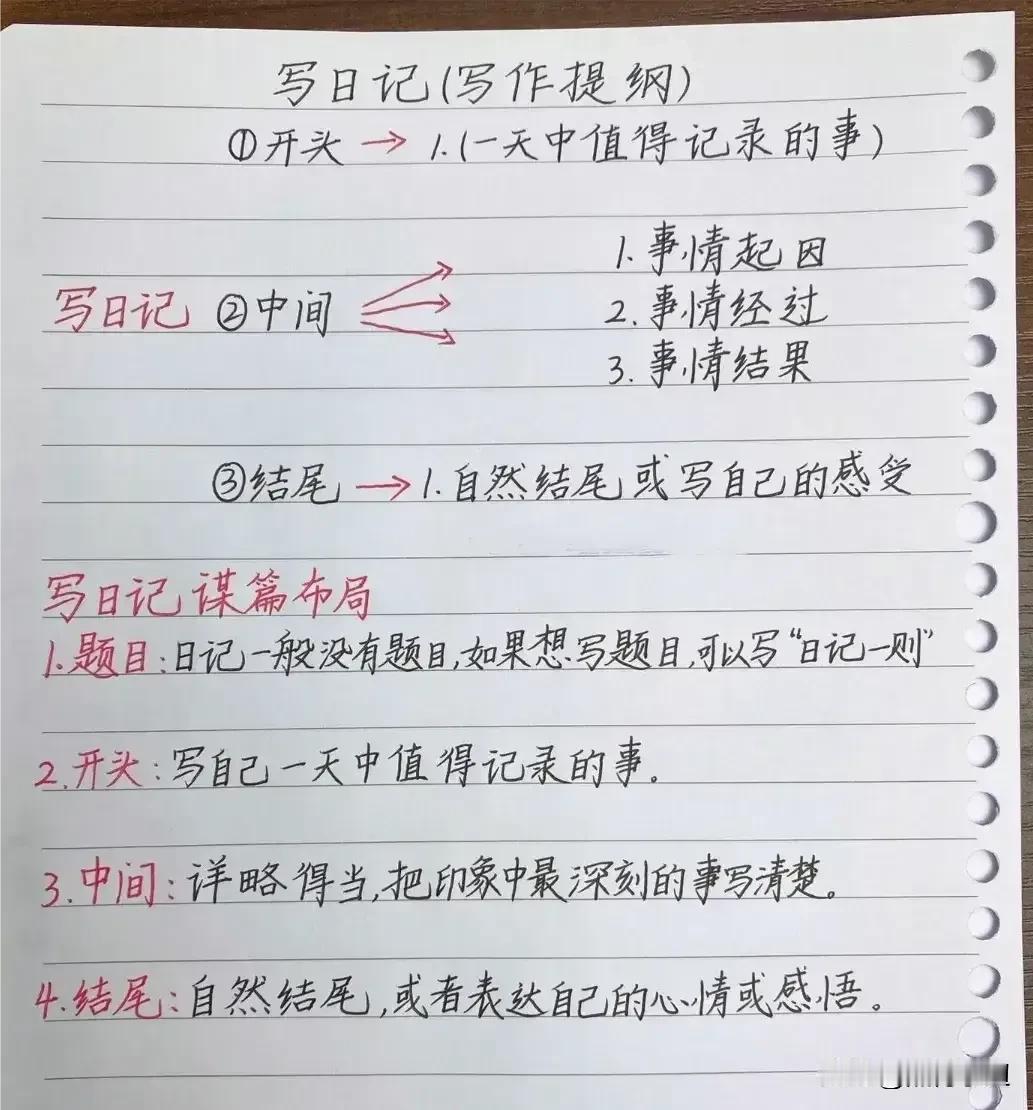 写日记(写作提纲)
①开头 → 1.(一天中值得记录的事)
1.事情起因
写日记 ②中间
2.事情经过
3.事情结果
③结尾 → 1.自然结尾或写自己的感受
写日记谋篇布局
1.题目:日记一般没有题目,如果想写题目,可以写“日记一则”
2.开头:写自己一天中值得记录的事。
3.中间:详略得当,把印象中最深刻的事写清楚。
4.结尾:自然结尾,或者表达自己的心情或感悟。